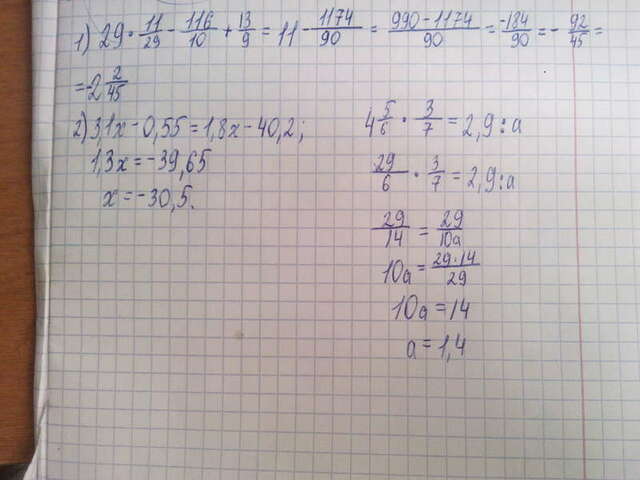 1) 29 · 11/29 - 116/10 + 13/9 = 11 - 1174/90 = 990-1174/90 = -184/90 = - 92/45 =
= -2 2/45
2) 3,1x - 0,55 = 1,8x - 40,2;
1,3x = -39,65
x = -30,5.
4 5/6 · 3/7 = 2,9 : a
29/6 · 3/7 = 2,9 : a
29/14 = 29/10a
10a = 29·14/29
10a = 14
a = 1,4